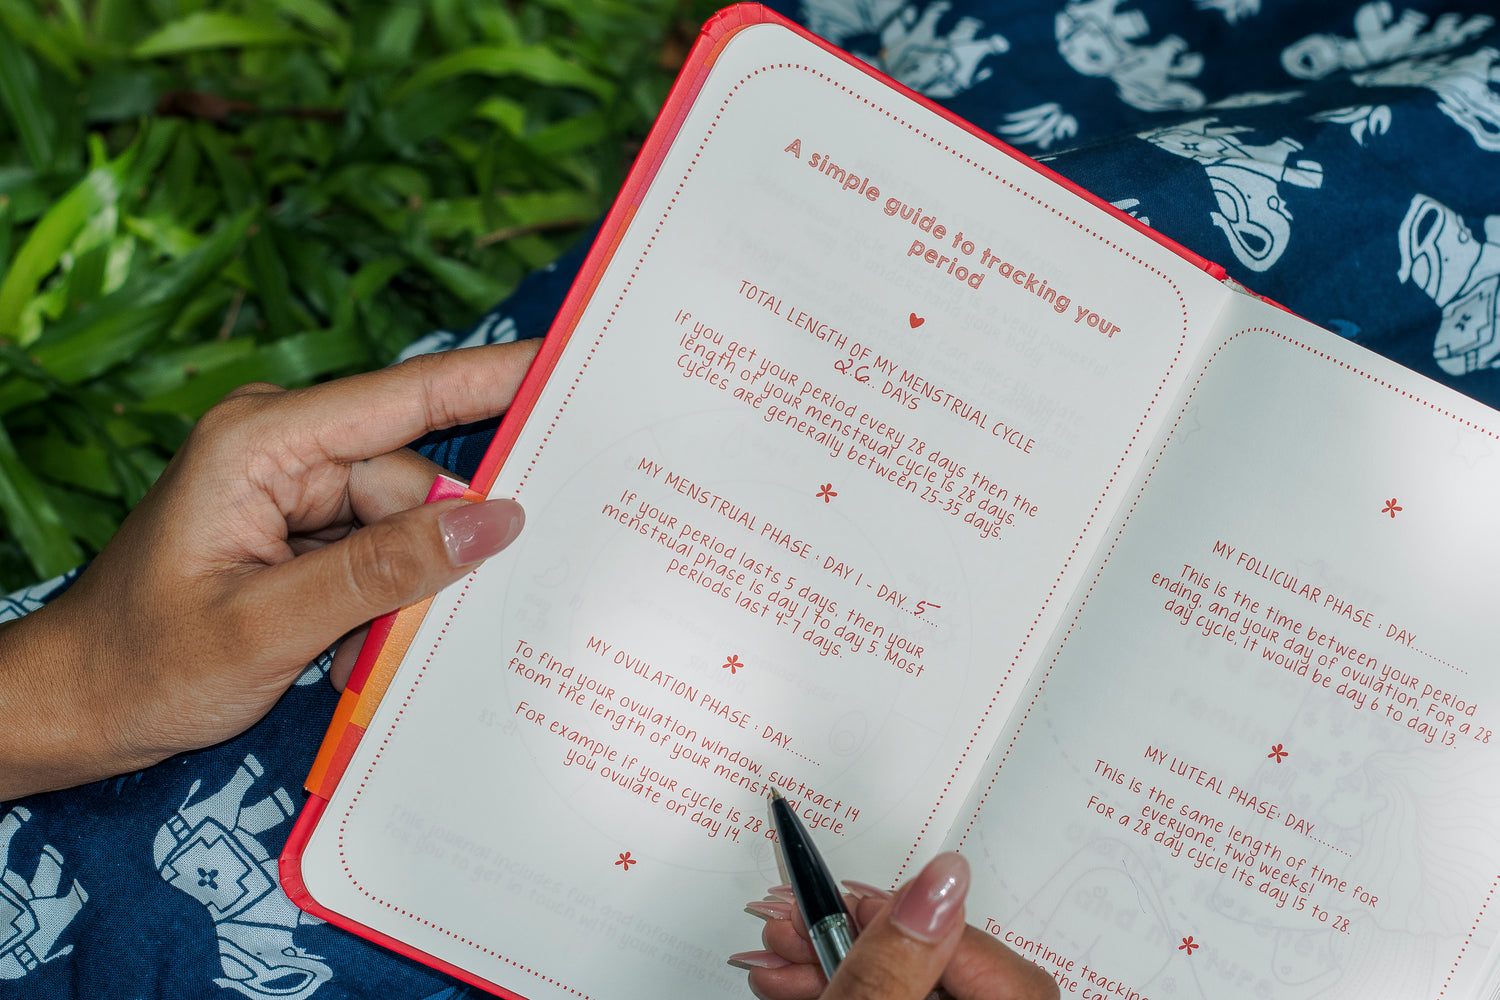 A simple guide to tracking your
period
TOTAL LENGTH OF MY MENSTRUAL CYCLE
26.. DAYS
If you get your period every 28 days then the
length of your menstrual cycle is 28 days.
Cycles are generally between 25-35 days.
MY MENSTRUAL PHASE : DAY 1 - DAY...5....
If your period lasts 5 days, then your
menstrual phase is day 1 to day 5. Most
periods last 4-7 days.
MY OVULATION PHASE : DAY.......
To find your ovulation window, subtract 14
from the length of your menstrual cycle.
For example if your cycle is 28
you ovulate on day 14.
MY FOLLICULAR PHASE : DAY..............
This is the time between your period
ending, and your day of ovulation. For a 28
day cycle, it would be day 6 to day 13.
MY LUTEAL PHASE: DAY...........
This is the same length of time for
everyone, two weeks!
For a 28 day cycle its day 15 to 28.
To continue tracking